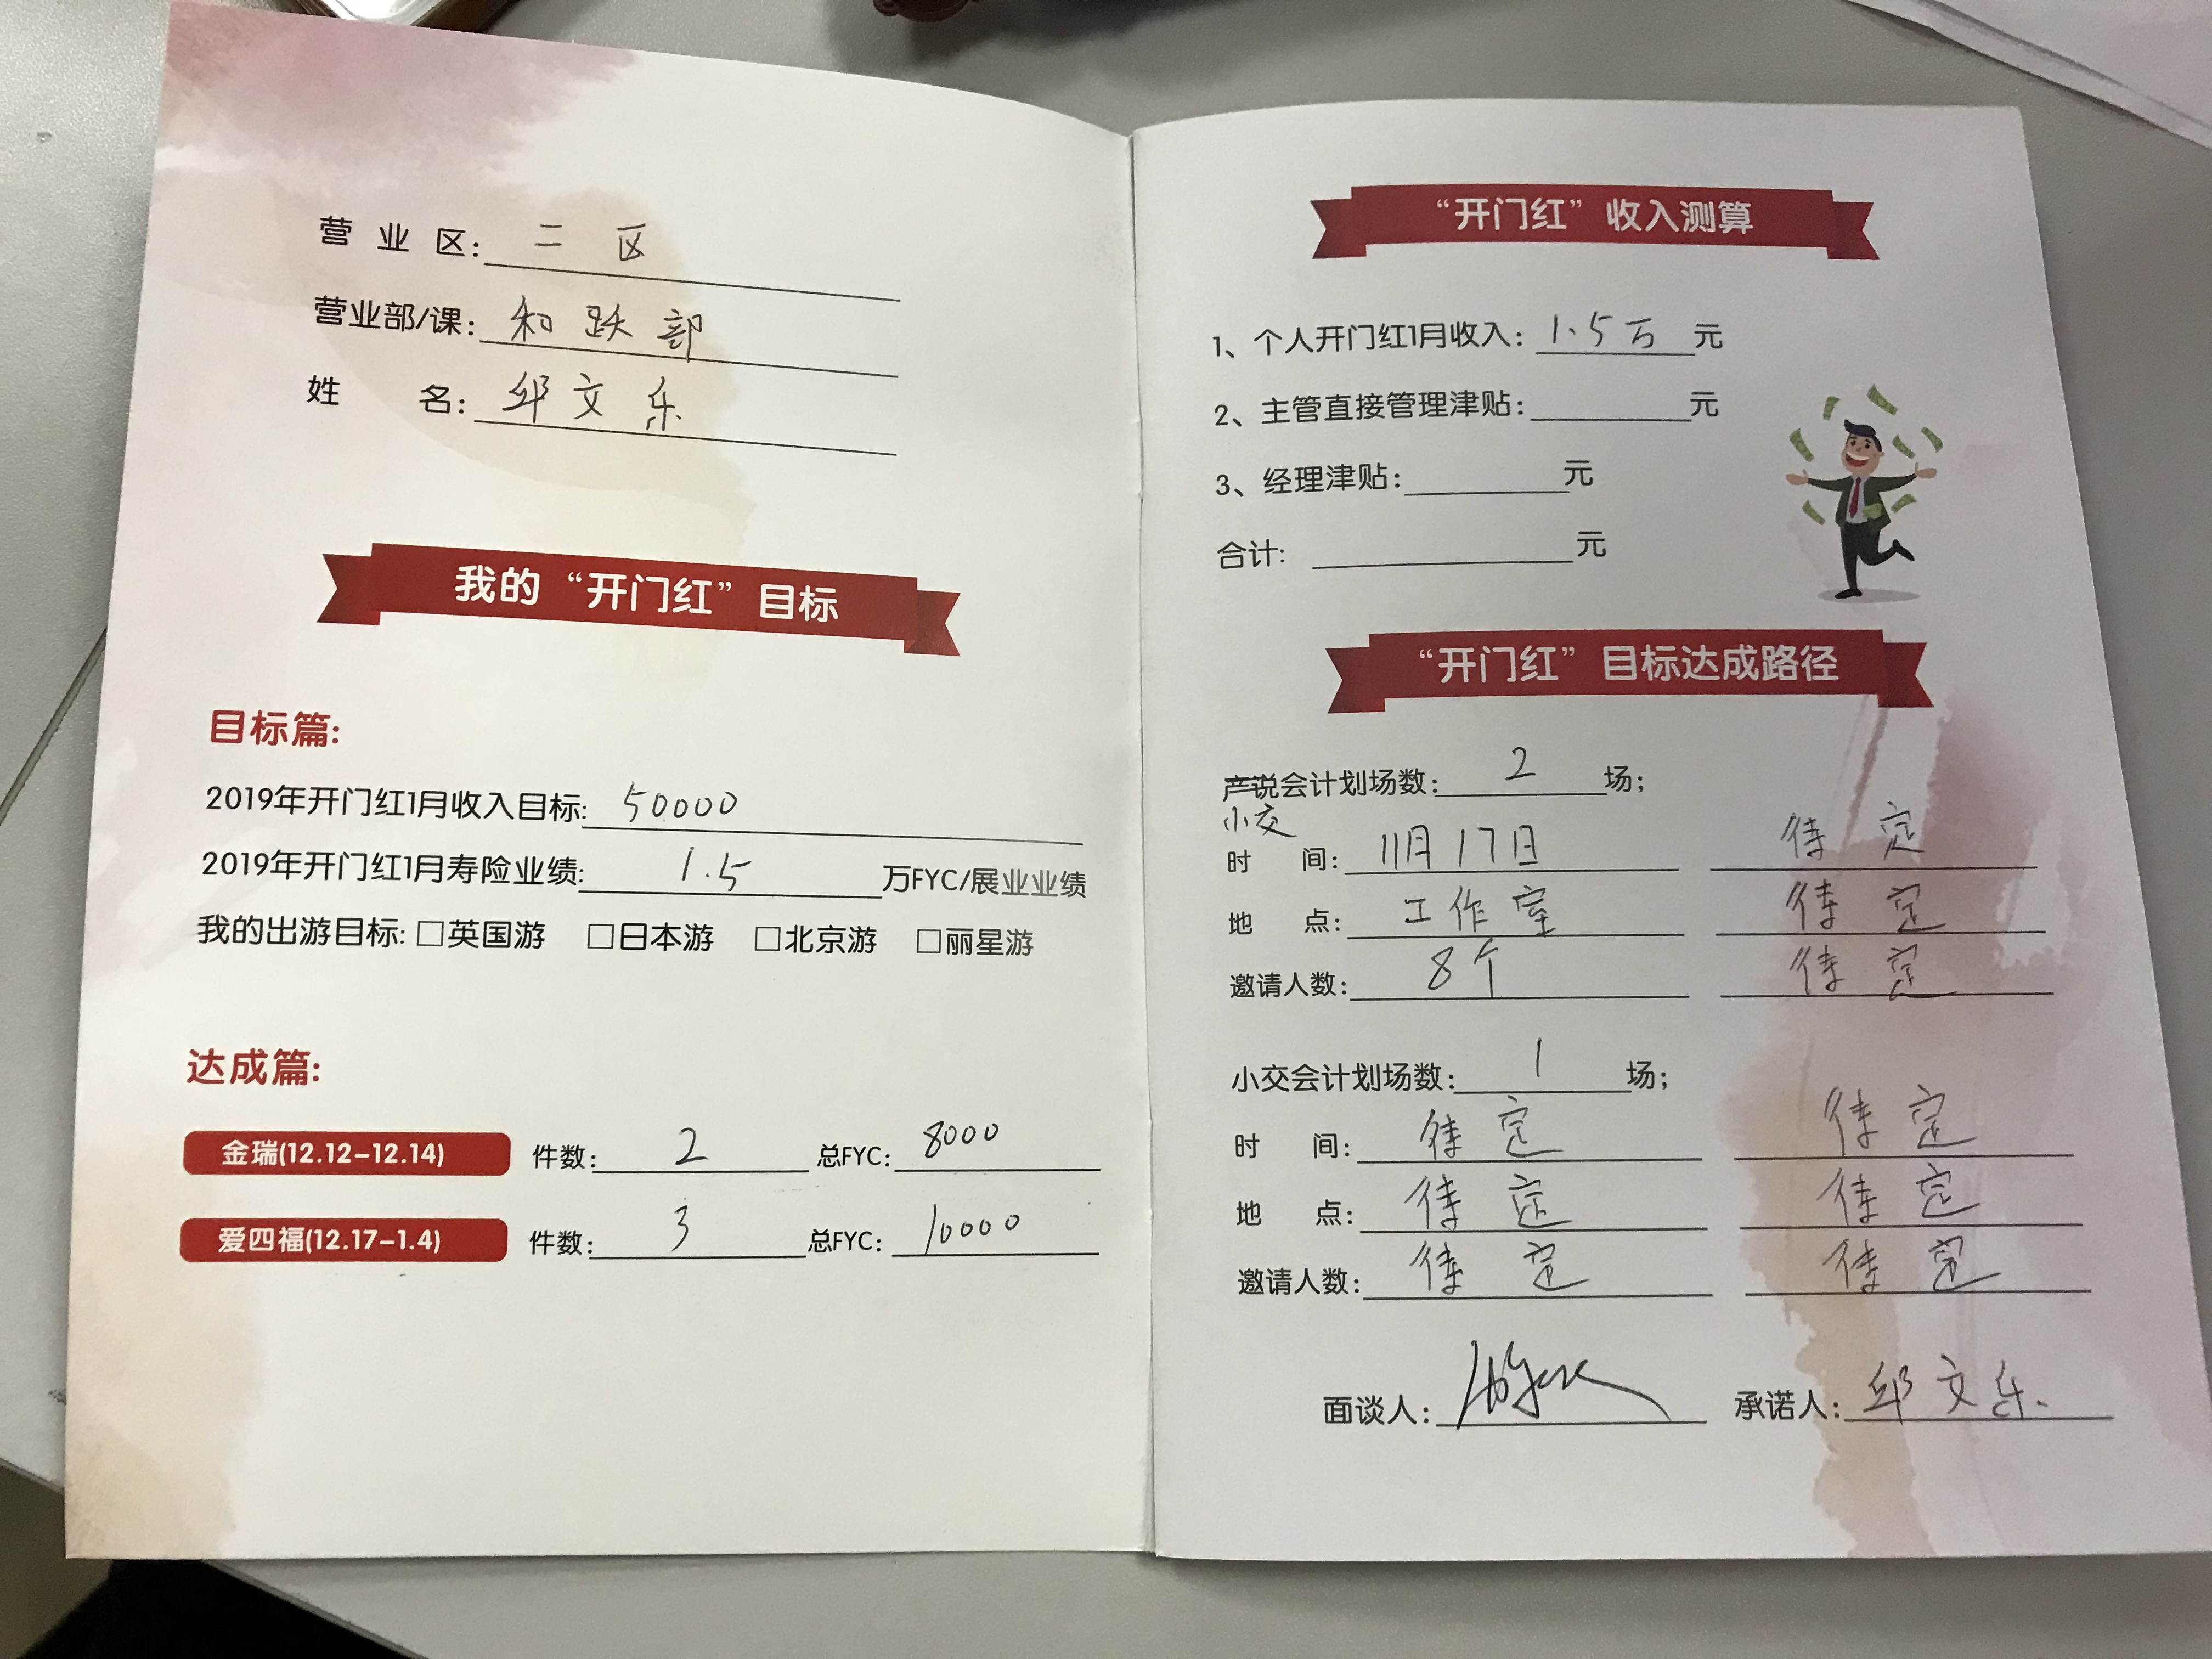 营业区: 二区
营业部/课: 和跃部
姓名: 邱文乐
我的“开门红”目标
目标篇:
2019年开门红1月收入目标: 50000
2019年开门红1月寿险业绩: 1.5 万FYC/展业业绩
我的出游目标: □英国游 □日本游 □北京游 □丽星游
达成篇:
金瑞(12.12-12.14) 件数: 2 总FYC: 8000
爱四福(12.17-1.4) 件数: 3 总FYC: 10000
“开门红”收入测算
1、个人开门红1月收入: 1.5万 元
2、主管直接管理津贴: 元
3、经理津贴: 元
合计: 元
“开门红”目标达成路径
产说会计划场数: 2 场;
小交
时间: 11月17日 待定
地点: 工作室 待定
邀请人数: 8个 待定
小交会计划场数: 1 场;
时间: 待定 待定
地点: 待定 待定
邀请人数: 待定 待定
面谈人: 承诺人: 邱文乐